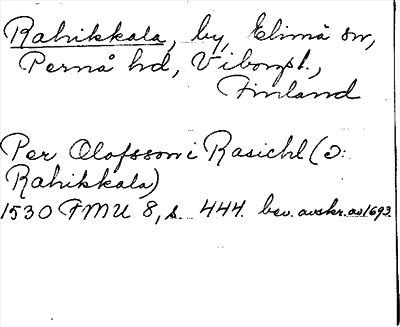 Rahikkala, by, Elimä sn,
Pernå hd, Viborgsl.,
Finland
Per Olofsson i Rasichl (ɔ:
Rahikkala)
1530 FMU 8, s. 444. bev. avskr. av 1693.